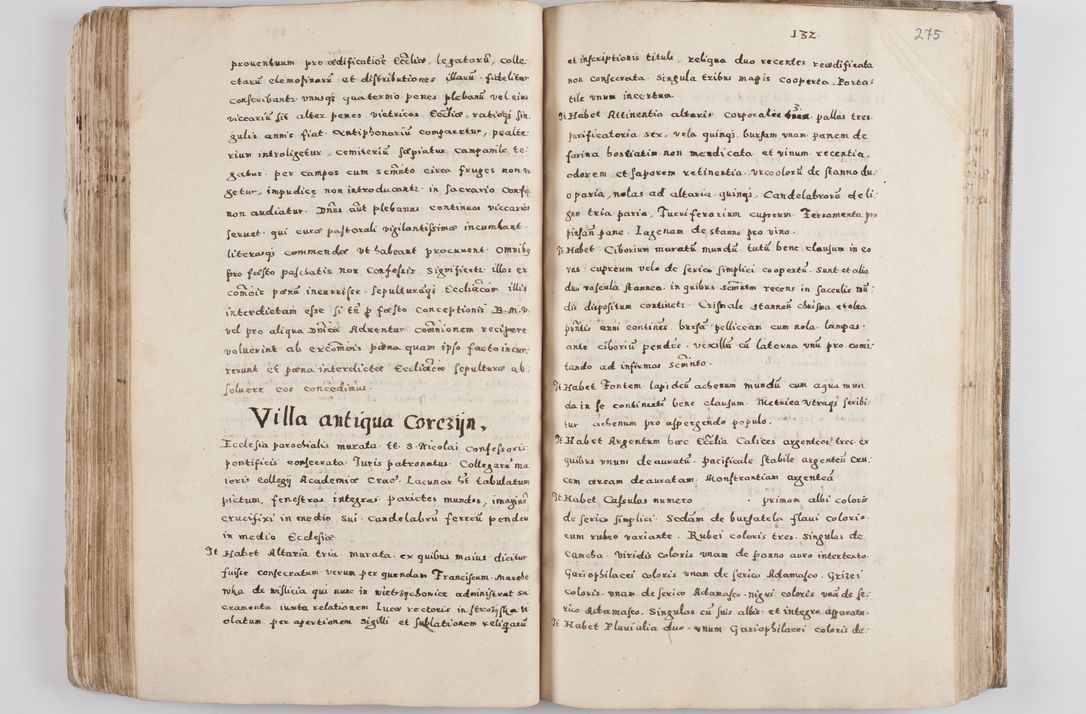 prouentuum pro ædificatiõe Eccliæ, legatarũ, colle-
ctarũ elemosinarũ et distributiones illarũ fideliter
conscribantr vnusqz quaternio penes plebanũ vel eius
viccariũ sit alter penes vietricos Eccliæ. ratioqz sin
gulis annis fiat. Antiphonariũ comparetur, psalte-
rium introligetur, cemiteriũ sæpiatur campanile te-
gatur. per campos cum scmẽnto circa fruges non
getur, impudicę non introducantr in sacrario
non audiatur. Dnus aũt plebanus continuos viccarios
seruet. qui curæ pastorali vigilantissimæ incumbant.
literasqz commendæ vt habeant procurent. Omnibq
pro fæsto paschatis non Confessis. Significetr illos ex
comõis pœnã incurrisse. sepulturãqz Ecclíacam illis
interdictam esse si tñ p fæsto Conceptionis B. M. V.
vel pro aliqua Dnica Aduentus comnionem recipere
voluerint ab excomõis pœna quam ipso facto incur-
rerunt et pœna interdictæ Ecclíacæ sepulturæ ab-
soluere eos concedimus.
Villa antiqua Corczijn.
Ecclesia parochialis murata. tt. S. Nicolai Confessoris
pontificis consecrata. Iuris patronatus. Collegarũ ma
ioris collegij Academiæ Crac. Lacunar ht tabulatum
pictum, fenestras integras parietes mundos, imaginẽ
crucifixi in medio sui. candelabrũ ferreũ penden
in medio Ecclesiæ
It Habet Altaria tria murata. ex quibus maius dicitur
fuisse consecratum verum per quendam Franciscum Maroche
wka de Wislicia qui nunc in Wietrzychowice administrat sa
cramenta. iuxta relationem Lucæ rectoris in Strozyska vi
olatum. per apertionem sigilli et sublationem religarũ
132
275
et inscriptionis tituli. reliqua duo recenter reædificata
non consecrata. singula tribus mapis cooperta. Porta-
tile vnum incertum
It Habet Attinentia altaris corporalia 3. pallas tres
purificatoria sex, vela quinqz, bursam vnam panem de
farina hostiatim non mendicata et vinum recentia,
odorem et saporem retinentia. vrceolorũ de stanno du-
o paria, nolas ad altaria quinqz, Candelabrorũ de li-
gno tria paria, Turriferarium cupreum. Ferramenta pro
pinsan pane. Lagenam de stanno pro vino.
It Habet Ciborium muratũ mundũ tutũ bene clausum in eo
vas cupreum velo de serico simplici coopertũ. Sunt et alia
duo vascula stannea. in quibus scmẽtum recens in sacculis mũ-
dis dispositum continetr. Crismale stanneũ chrisma et olea
pñtis anni continẽs. bursa pelliceam cum nola. lampas
ante ciboriũ pendẽs. vexillũ cũ laterna vnũ pro comi-
tando ad infirmos scmẽnto.
It Habet Fontem lapideũ achenum mundũ cum aqua mun
da in se continentẽ bene clausum. Metrica vtraqz scribi-
tur achenum pro aspergendo populo.
It Habet Argentum hæc Ecclia Calices argenteos tres ex
quibus vnum deauratũ. pacificale stabile argenteũ Cru-
cem æream deauratam. Monstrantiam argenteã
It Habet Casulas numero . primam albi coloris
de serico simplici. Secdam de bursatela flaui coloris
cum rubeo variante. Rubei coloris tres. singulas de
camcha. viridis coloris vnam de panno auro intertexto.
Gariophilacei coloris vnam de serico Adamasco. Grizei
coloris. vnam de serico Adamasco. nigri coloris vnã de se-
rico Adamasco. Singulas cũ suis albis et integro apparatu.
It Habet Pluuialia duo. vnum Gariophilacei coloris de-